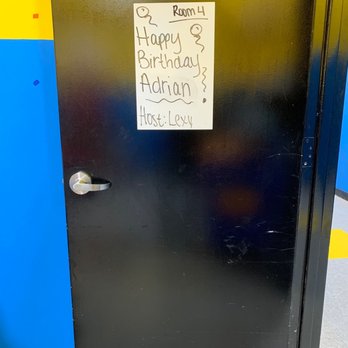 Room 4
Happy
Birthday
Adrian
Host: Lexx